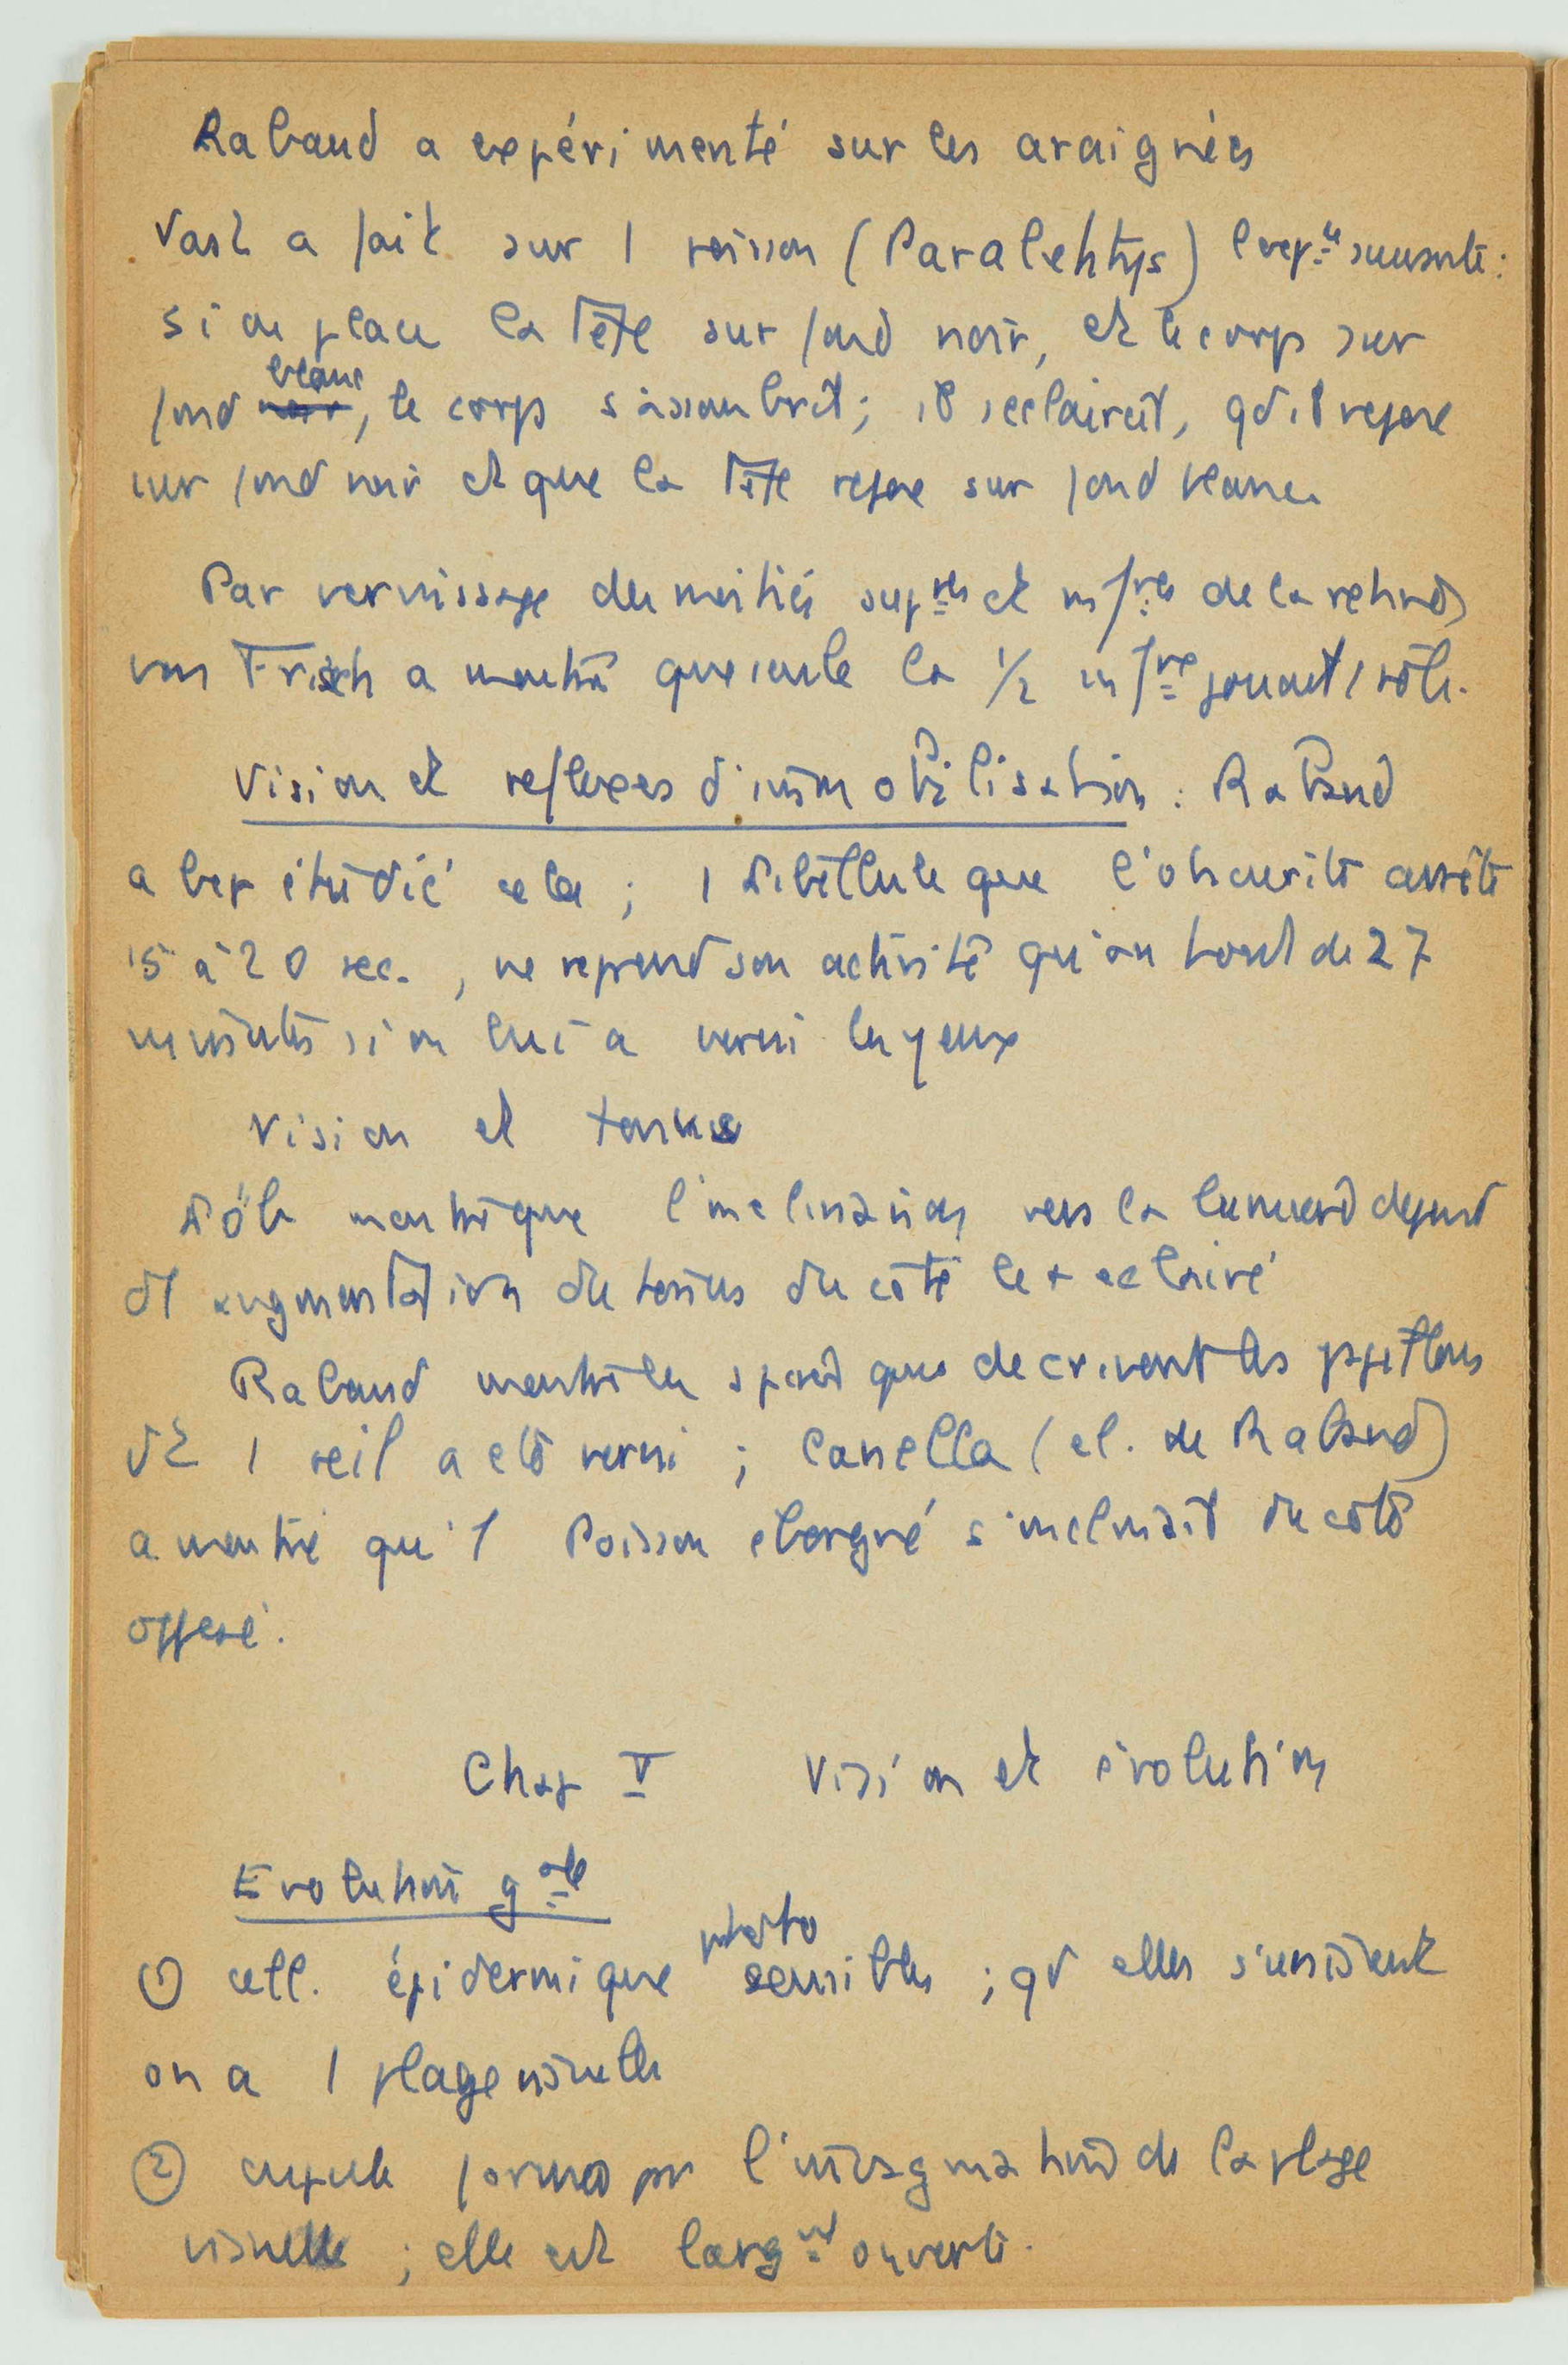 Rabaud a expérimenté sur les araignées
Vast a fait sur 1 poisson (Paralehtys) l'expce suivante :
si on place la tête sur fond noir, et le corps sur
fond noir blanc, le corps s'assombrit ; il s'eclaircit, qd il repose
sur fond noir et que la tête repose sur fond blanc.
Par vernissage des moitiés supres et infres de la retine,
von Frisch a montré que seule la 1/2 infre jouait 1 rôle.
Vision et reflexes d'immobilisation : Rabaud
a bcp étudié cela ; 1 Libellule que l'obscurité arrête
15 à 20 sec., ne reprend son activité qu'au bout de 27
minutes si on lui a verni les yeux
Vision et tonus
Löb montre que l'inclinaison vers la lumière depend
d'1 augmentation du tonus du côté le + eclairé
Rabaud montre les que decrivent les papillons
dt 1 œil a eté verni ; Canella (el. de Rabaud)
a montré qu'1 Poisson eborgné s'inclinait du côté
opposé.
Chap V Vision et évolution
Evolution gale
① cell. épidermique photo sensibles ; qd elles s'unissent
on a 1 plage visuelle
② cupule formée par l'invagination de la plage
visuelle ; elle est largnt ouverte.